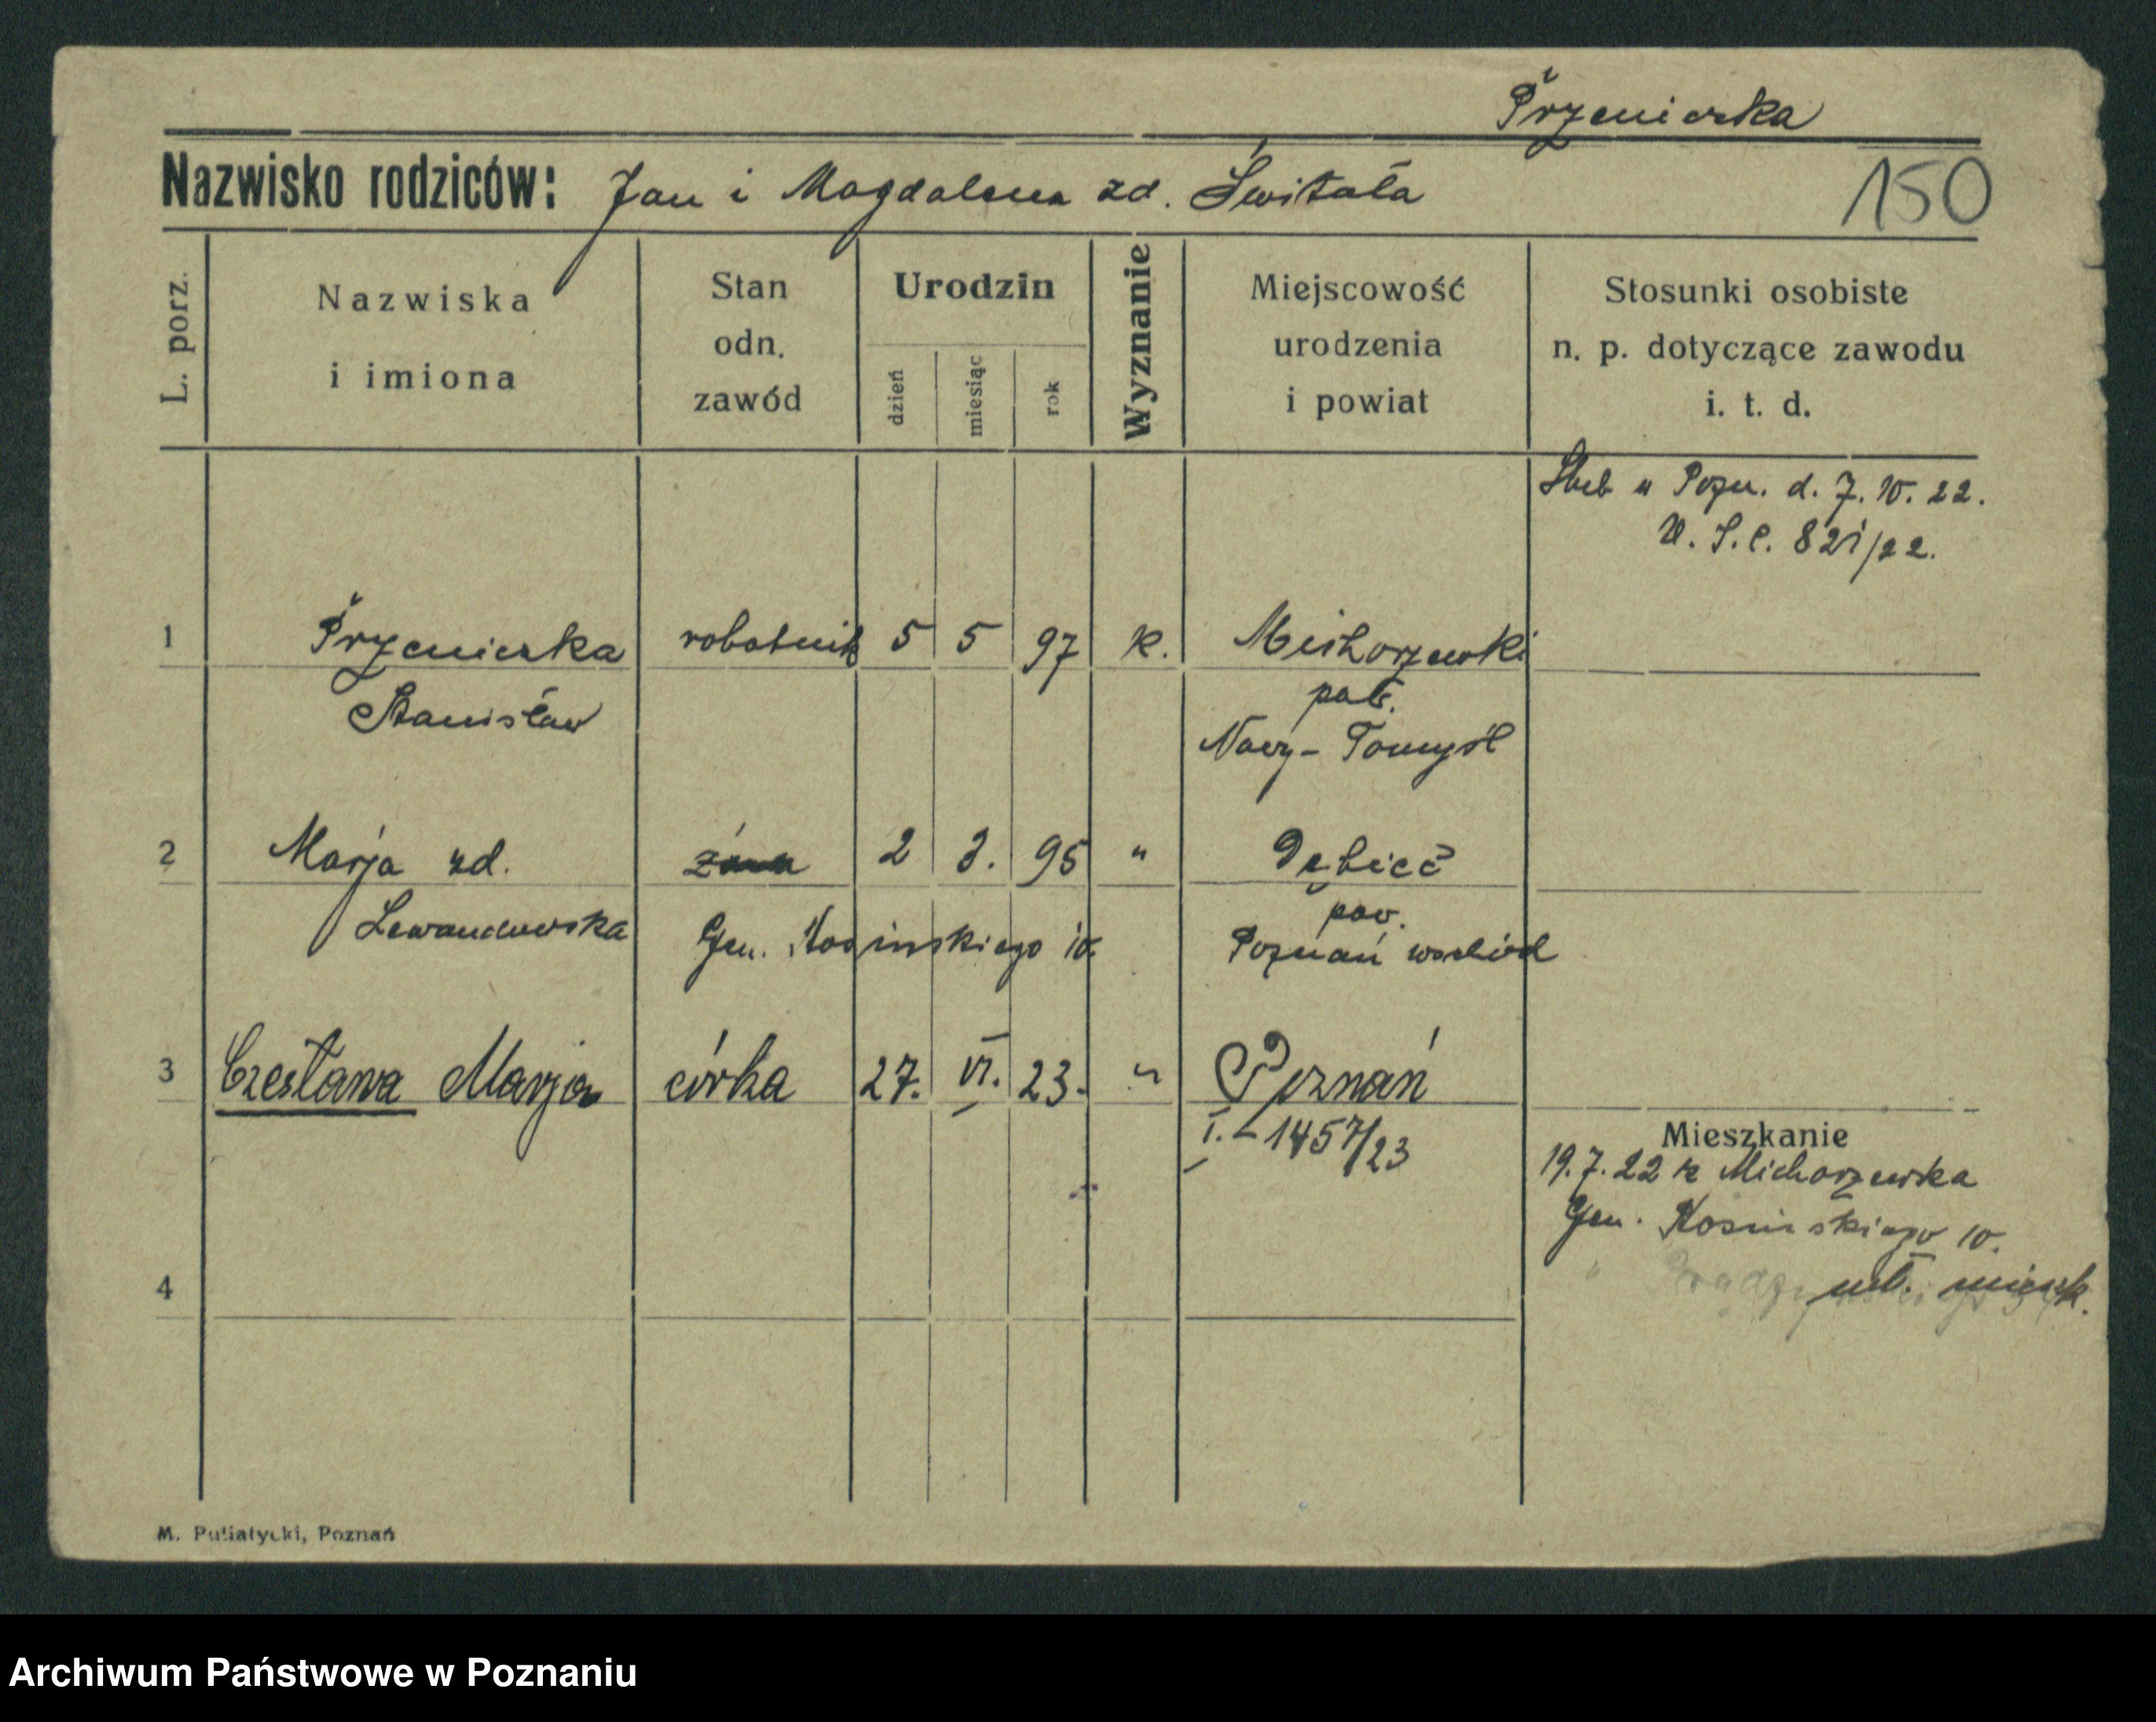 Przenicska
Nazwisko rodziców: Jan i Magdalena zd. Świtała
150
L. porz.
Nazwiska
i imiona
Stan
odn.
zawód
Urodzin
dzień
miesiąc
rok
Wyznanie
Miejscowość
urodzenia
i powiat
Stosunki osobiste
n. p. dotyczące zawodu
i. t. d.
Ślub w Pozn. d. 7. 10. 22.
U. S. C. 821/22.
1 robotnik 5 5 97 k.
Stanisław
Nowy-Tomyśl
2 Marja zd. żona 2 3. 95 " Dębieć
pow.
Lewandowska Gen. Kosinskiego 10. Poznań wschód
3 Czesława Marja córka 27. VI. 23. " Poznań
I. - 1457/23
Mieszkanie
19. 7. 22 z Michorzewka
Gen. Kosinskiego 10.
mieszk.
4
M. Putiatycki, Poznań
Archiwum Państwowe w Poznaniu